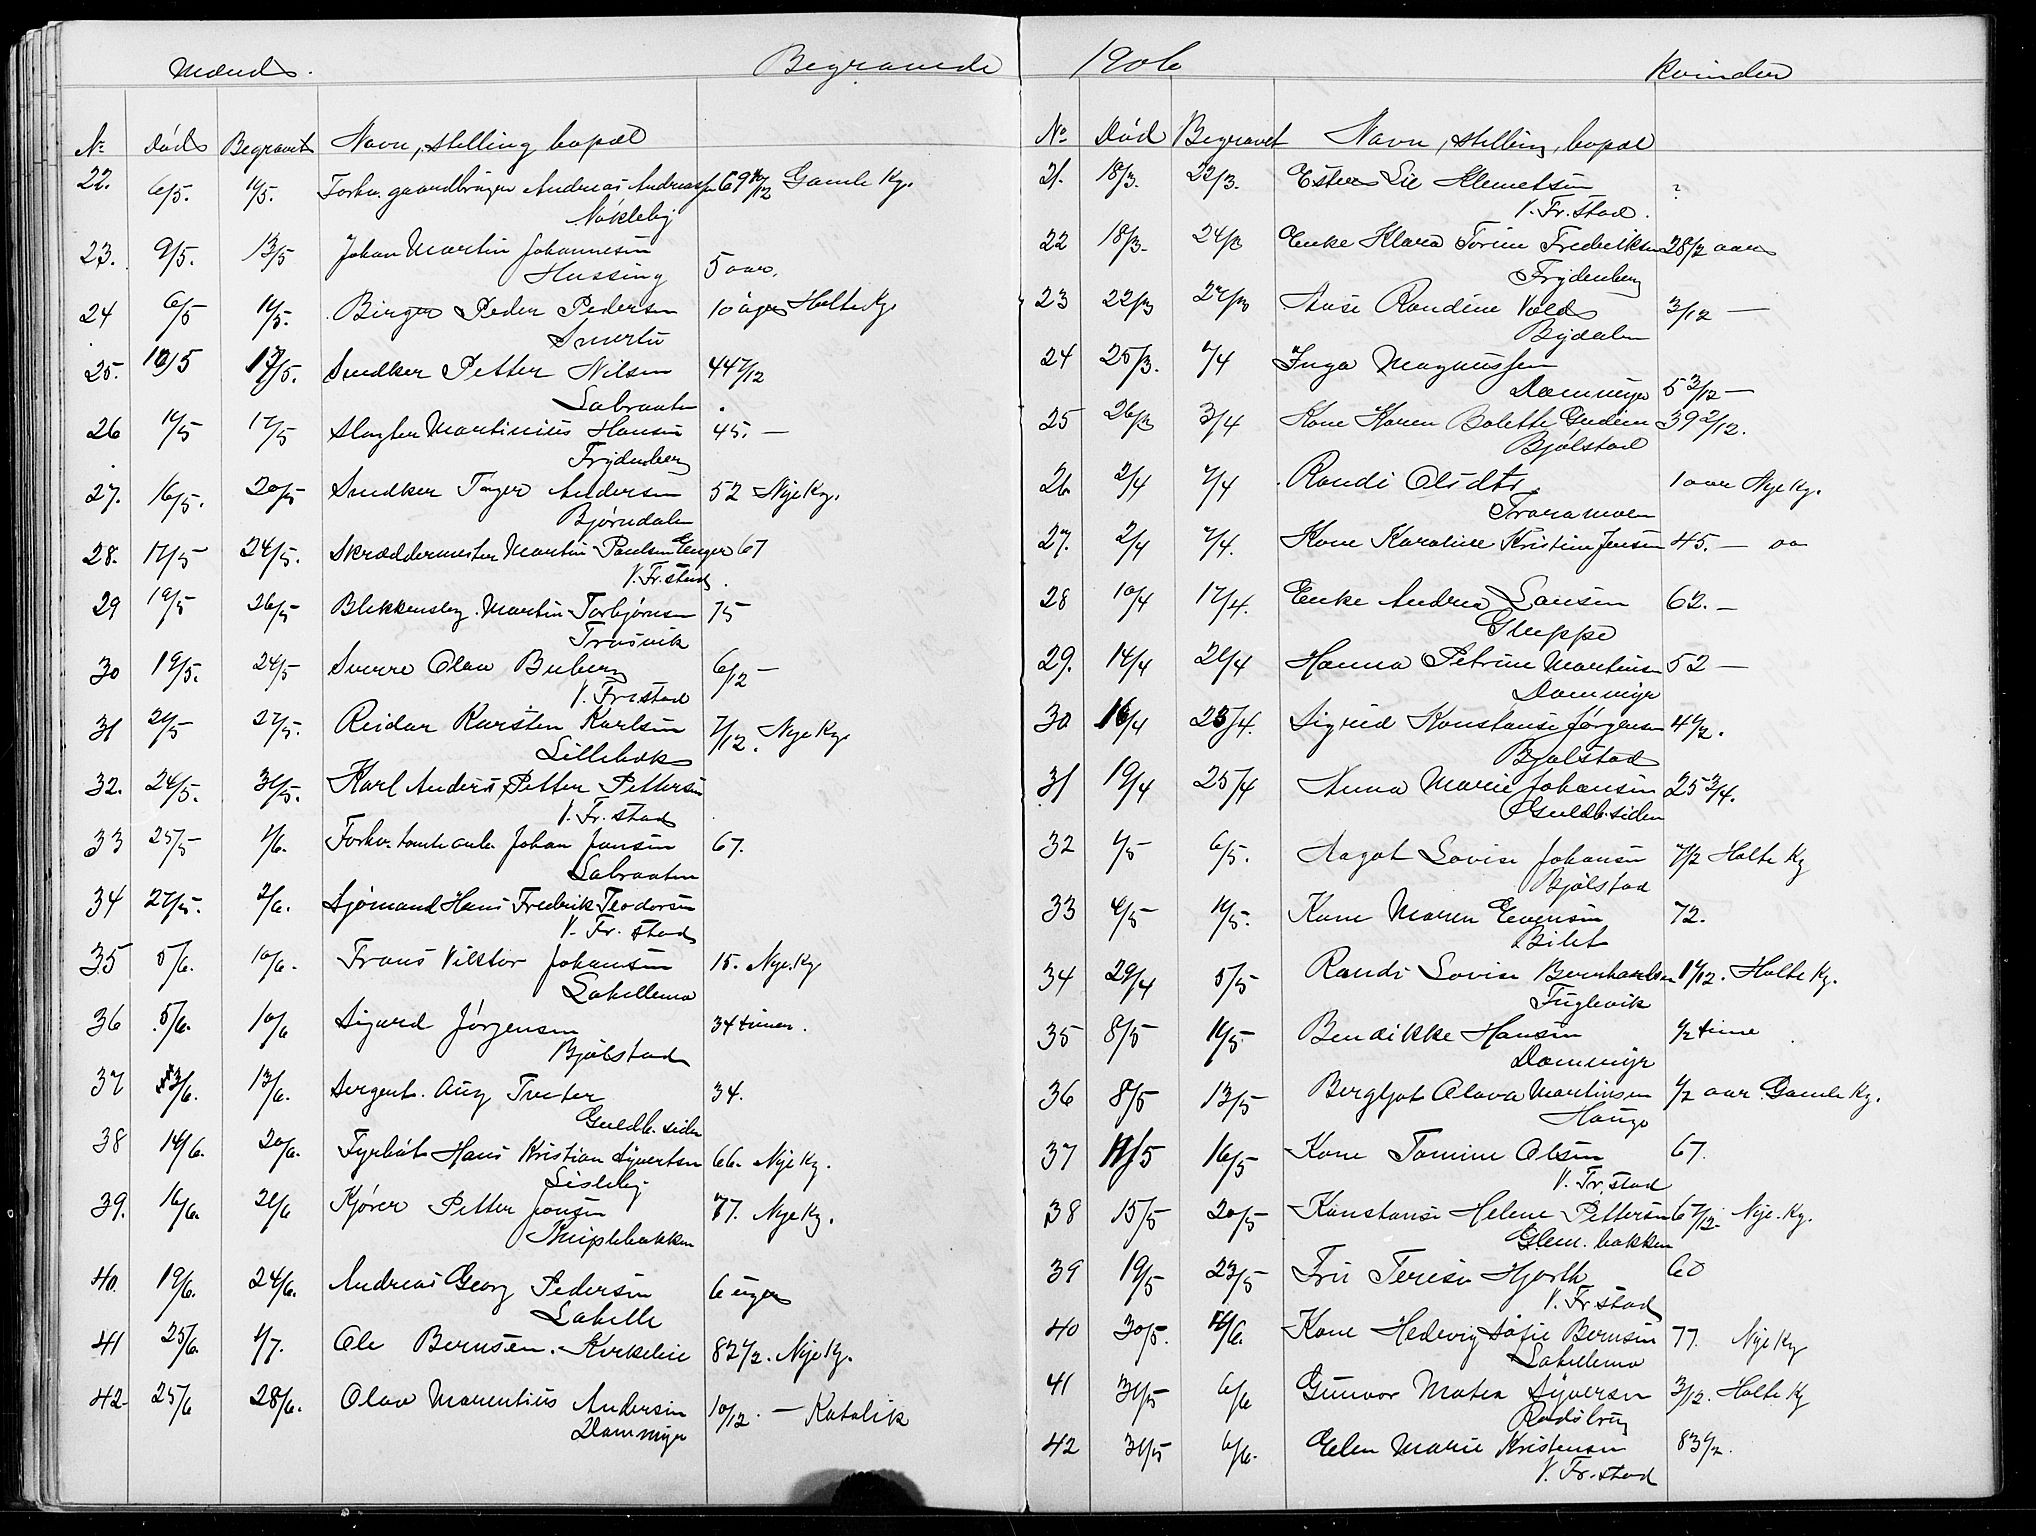 Mænd.
Begravede
No Død Begravet Navn, stilling, bopæl
22. 6/5. 11/5. Forhv. gaardbruger Andreas Andreassen 69 10/12 Gamle Kg.
Nøkleby
23. 9/5. 13/5 Johan Martin Johannesen
Hussing 5 aar.
24 6/5 11/5. Birger Peder Pedersen 10 uger Holte Kg.
Smertu
25. 10/5 17/5. Snedker Petter Nilsen 44 7/12
Labraaten
26 11/5 17/5 Slagter Martinius Hansen 45. —
Frydenberg
27. 16/5. 20/5 Snedker Torger Andersen 52 Nye Kg.
Bjørndalen
28. 17/5 24/5. Skræddermester Martin Paulsen Enger 67
V. Fr.stad.
29 19/5 26/5 Blikkenslag. Martin Torbjørnsen 75
Trosvik
30 19/5. 24/5 Sverre Olav Buberg 6/12 —
V. Fr.stad
31 21/5 27/5. Reidar Karsten Karlsen 7/12. Nye Kg.
Lillebæk
32. 24/5. 31/5. Karl Anders Petter Pettersen
V. Fr. stad
33 25/5 1/6. Forhv. tomtearb. Johan Jansen 67.
Labraaten
34 27/5. 2/6. Sjømand Hans Fredrik Teodorsen
V. Fr. stad
35 5/6. 10/6. Frans Viktor Johansen 15. Nye Kg
Lahellemo
36 5/6. 10/6 Sigurd Jørgensen 34 timer.
Bjølstad
37 3/6. 13/6. Sergent. Aug Tveter 34.
Guldb. siden
38 14/6. 20/6. Fyrbøt Hans Kristian Syvertsen 66. Nye Kg.
Lisleby
39. 16/6. 21/6 Kjører Petter Jonsen 77. Nye Kg.
Kniplebakken
40. 19/6. 24/6. Andreas Georg Pedersen 6 uger
Lahelle
41 25/6. 1/7. Ole Bernsen. Kirkelie 82 1/2. Nye Kg.
42 25/6 28/6. Olav Marentius Andersen 10/12. — Katolik
Dammyr
1906
Kvinder
No Død Begravet Navn, stilling, bopæl
21. 18/3. 22/3. Ester Lie Klemetsen ?
V. Fr. stad.
22 18/3. 24/3 Enke Klara Torine Fredriksen 28 1/2 aar
Frydenberg
23 22/3 27/3 Aase Randine Vold 3/12 —
Bydalen
24 25/3. 1/4 Inga Magnussen
Dammyr 5 3/12 —
25 26/3 3/4 Kone Karen Bolette Gudem 39 2/12.
Bjølstad
26 2/4 7/4 Randi Olsdt. 1 aar Nye Kg.
Traramoen
27. 2/4 7/4. Kone Karoline Kristine Jensen 45. — aa
28 10/4 17/4. Enke Andrea Larsen 62. —
Gluppe
29. 14/4 21/4 Hanna Petrine Martinsen 52 —
Dammyr
30 16/4 23/4. Sigrid Konstanse Jørgensen 4 1/2.
Bjølstad
31 19/4 25/4 Anna Marie Johansen 25 3/4.
Guldb. siden
32 1/5 6/5. Aagot Lovise Johansen 7 1/2 Holte Kg
Bjølstad
33 6/5 11/5. Kone Maren Evensen 72.
Bilet
34 29/4 5/5 Randi Lovise Bernhardsen 11/12. Holte Kg.
Fuglevik
35 8/5 11/5. Bendikke Hansen 1/2 time
Dammyr
36 8/5 13/5 Bergljot Olava Martinsen 1/2 aar Gamle Kg.
Hauge
37 11/5 16/5 Kone Tomine Olsen 67.
V. Fr. stad
38 15/5 20/5 Konstanse Helene Pettersen 6 7/12. Nye. Kg.
Glem. bakken
39 19/5 23/5 Fru Terese Hjorth 60
V. Fr. stad
40 30/5. 4/6. Kone Hedevig Sofie Bernsen 77. Nye Kg
Lahellemo
41 31/5 6/6 Gunvor Matea Syversen 3/12. Holte Kg
Rødsbrug
42 31/5 6/6. Elen Marie Kristensen 83 1/2.
V. Fr. stad